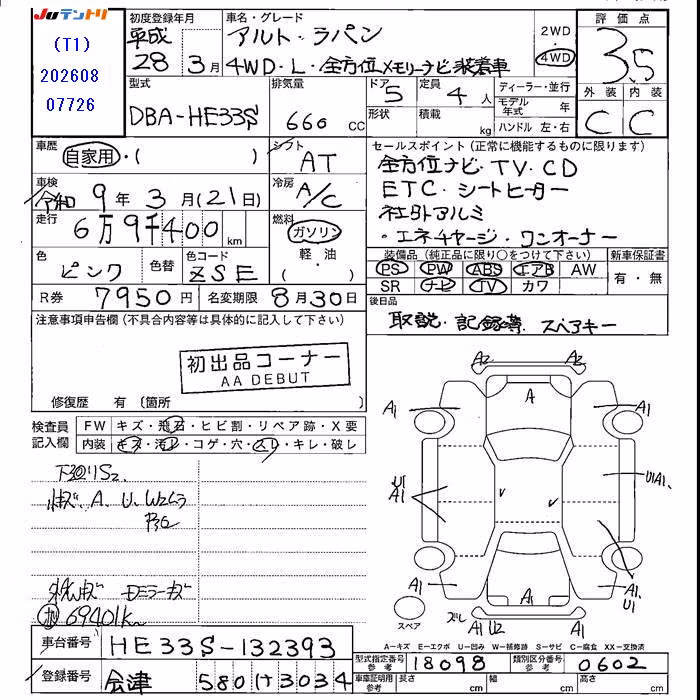 Juテントリ
(T1)
202608
07726
初度登録年月
平成
28年3月
車名・グレード
アルト・ラパン
4WD・L・全方位メモリーナビ装着車
2WD
4WD
評価点
3.5
外装 内装
C C
型式
DBA-HE33S
排気量
660 CC
ドア 5
形状
定員 4人
積載 kg
ディーラー・並行
モデル年式 年
ハンドル 左・右
車歴
自家用・( )
シフト
AT
車検
令和9年3月(21日)
冷房
A/C
走行
6万9千400km
燃料
ガソリン
(軽・油)
色
ピンク
色替
色コード
ZSE
R券 7950円
名変期限 8月30日
セールスポイント(正常に機能するものに限ります)
全方位ナビ・TV・CD
ETC・シートヒーター
社外アルミ
・エネチャージ・ワンオーナー
装備品(純正品に限り○をつけて下さい) 新車保証書
PS PW ABS エアB AW
SR ナビ TV カワ
有・無
後日品
取説・記録簿 スペアキー
注意事項申告欄(不具合内容等は具体的に記入して下さい)
初出品コーナー
AA DEBUT
修復歴 有〔箇所
検査員記入欄
FW キズ・飛石・ヒビ割・リペア跡・X要
内装 キズ・汚レ・コゲ・穴・スレ・キレ・破レ
下廻りS2
69401K
A2 A2
A1 A A1
U1
A1
U1A1
A1 A1 A1
U1
ズレ
A1 U2
スペア
A-キズ E-エクボ U-凹み W-補修跡 S-サビ C-腐食 XX-交換済
車台番号 HE33S-132393
登録番号 会津 580け3034
型式指定番号 参考 18098
類別区分番号 参考 0602
車庫証明用参考 長さ cm 幅 cm 高さ cm